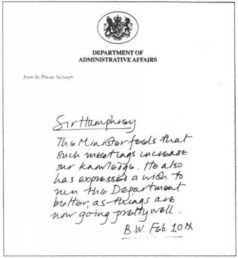 DEPARTMENT OF
ADMINISTRATIVE AFFAIRS
From the Private Secretary
Sir Humphrey
The Minister feels that
such meetings increase
our knowledge. He also
has expressed a wish to
run the Department
better, as things are
now going pretty well.
B.W. Feb 10th